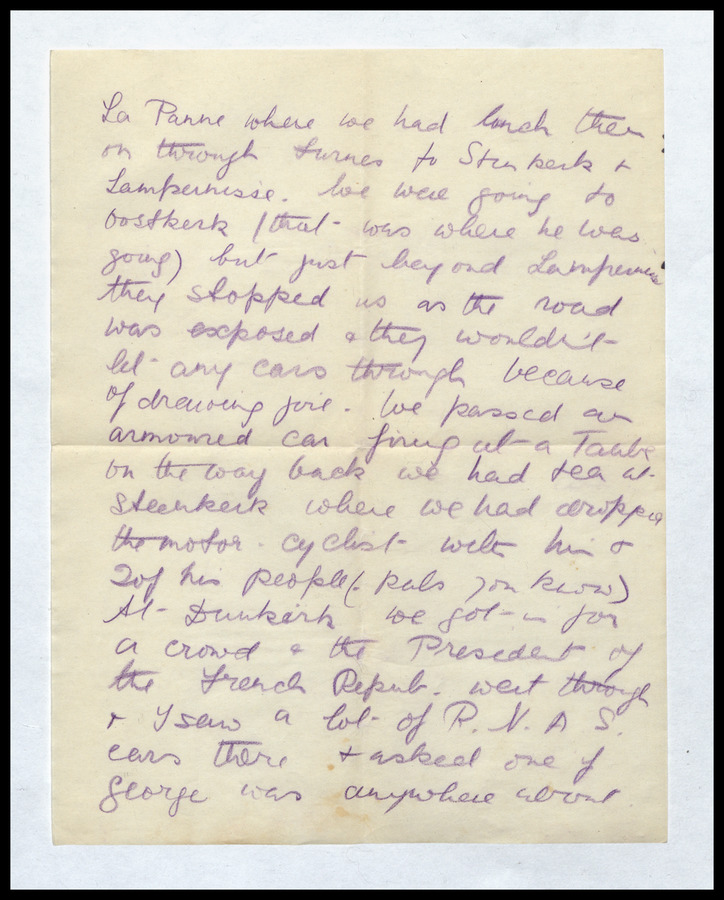 La Panne where we had lunch then
on through Furnes to Steenkerk +
Lampernisse. We were going to
Oostkerk (that was where he was
going) but just beyond Lampernisse
they stopped us as the road
was exposed & they wouldn't
let any cars through because
of drawing fire. We passed an
armoured car firing at a Taube
on the way back we had tea at
Steenkerk where we had dropped
the motor-cyclist with him &
2 of his people (. pals you know)
At Dunkerk we got in for
a crowd & the President of
the French Repub. went through
+ I saw a lot of R.N.A.S.
cars there + asked one if
George was anywhere about